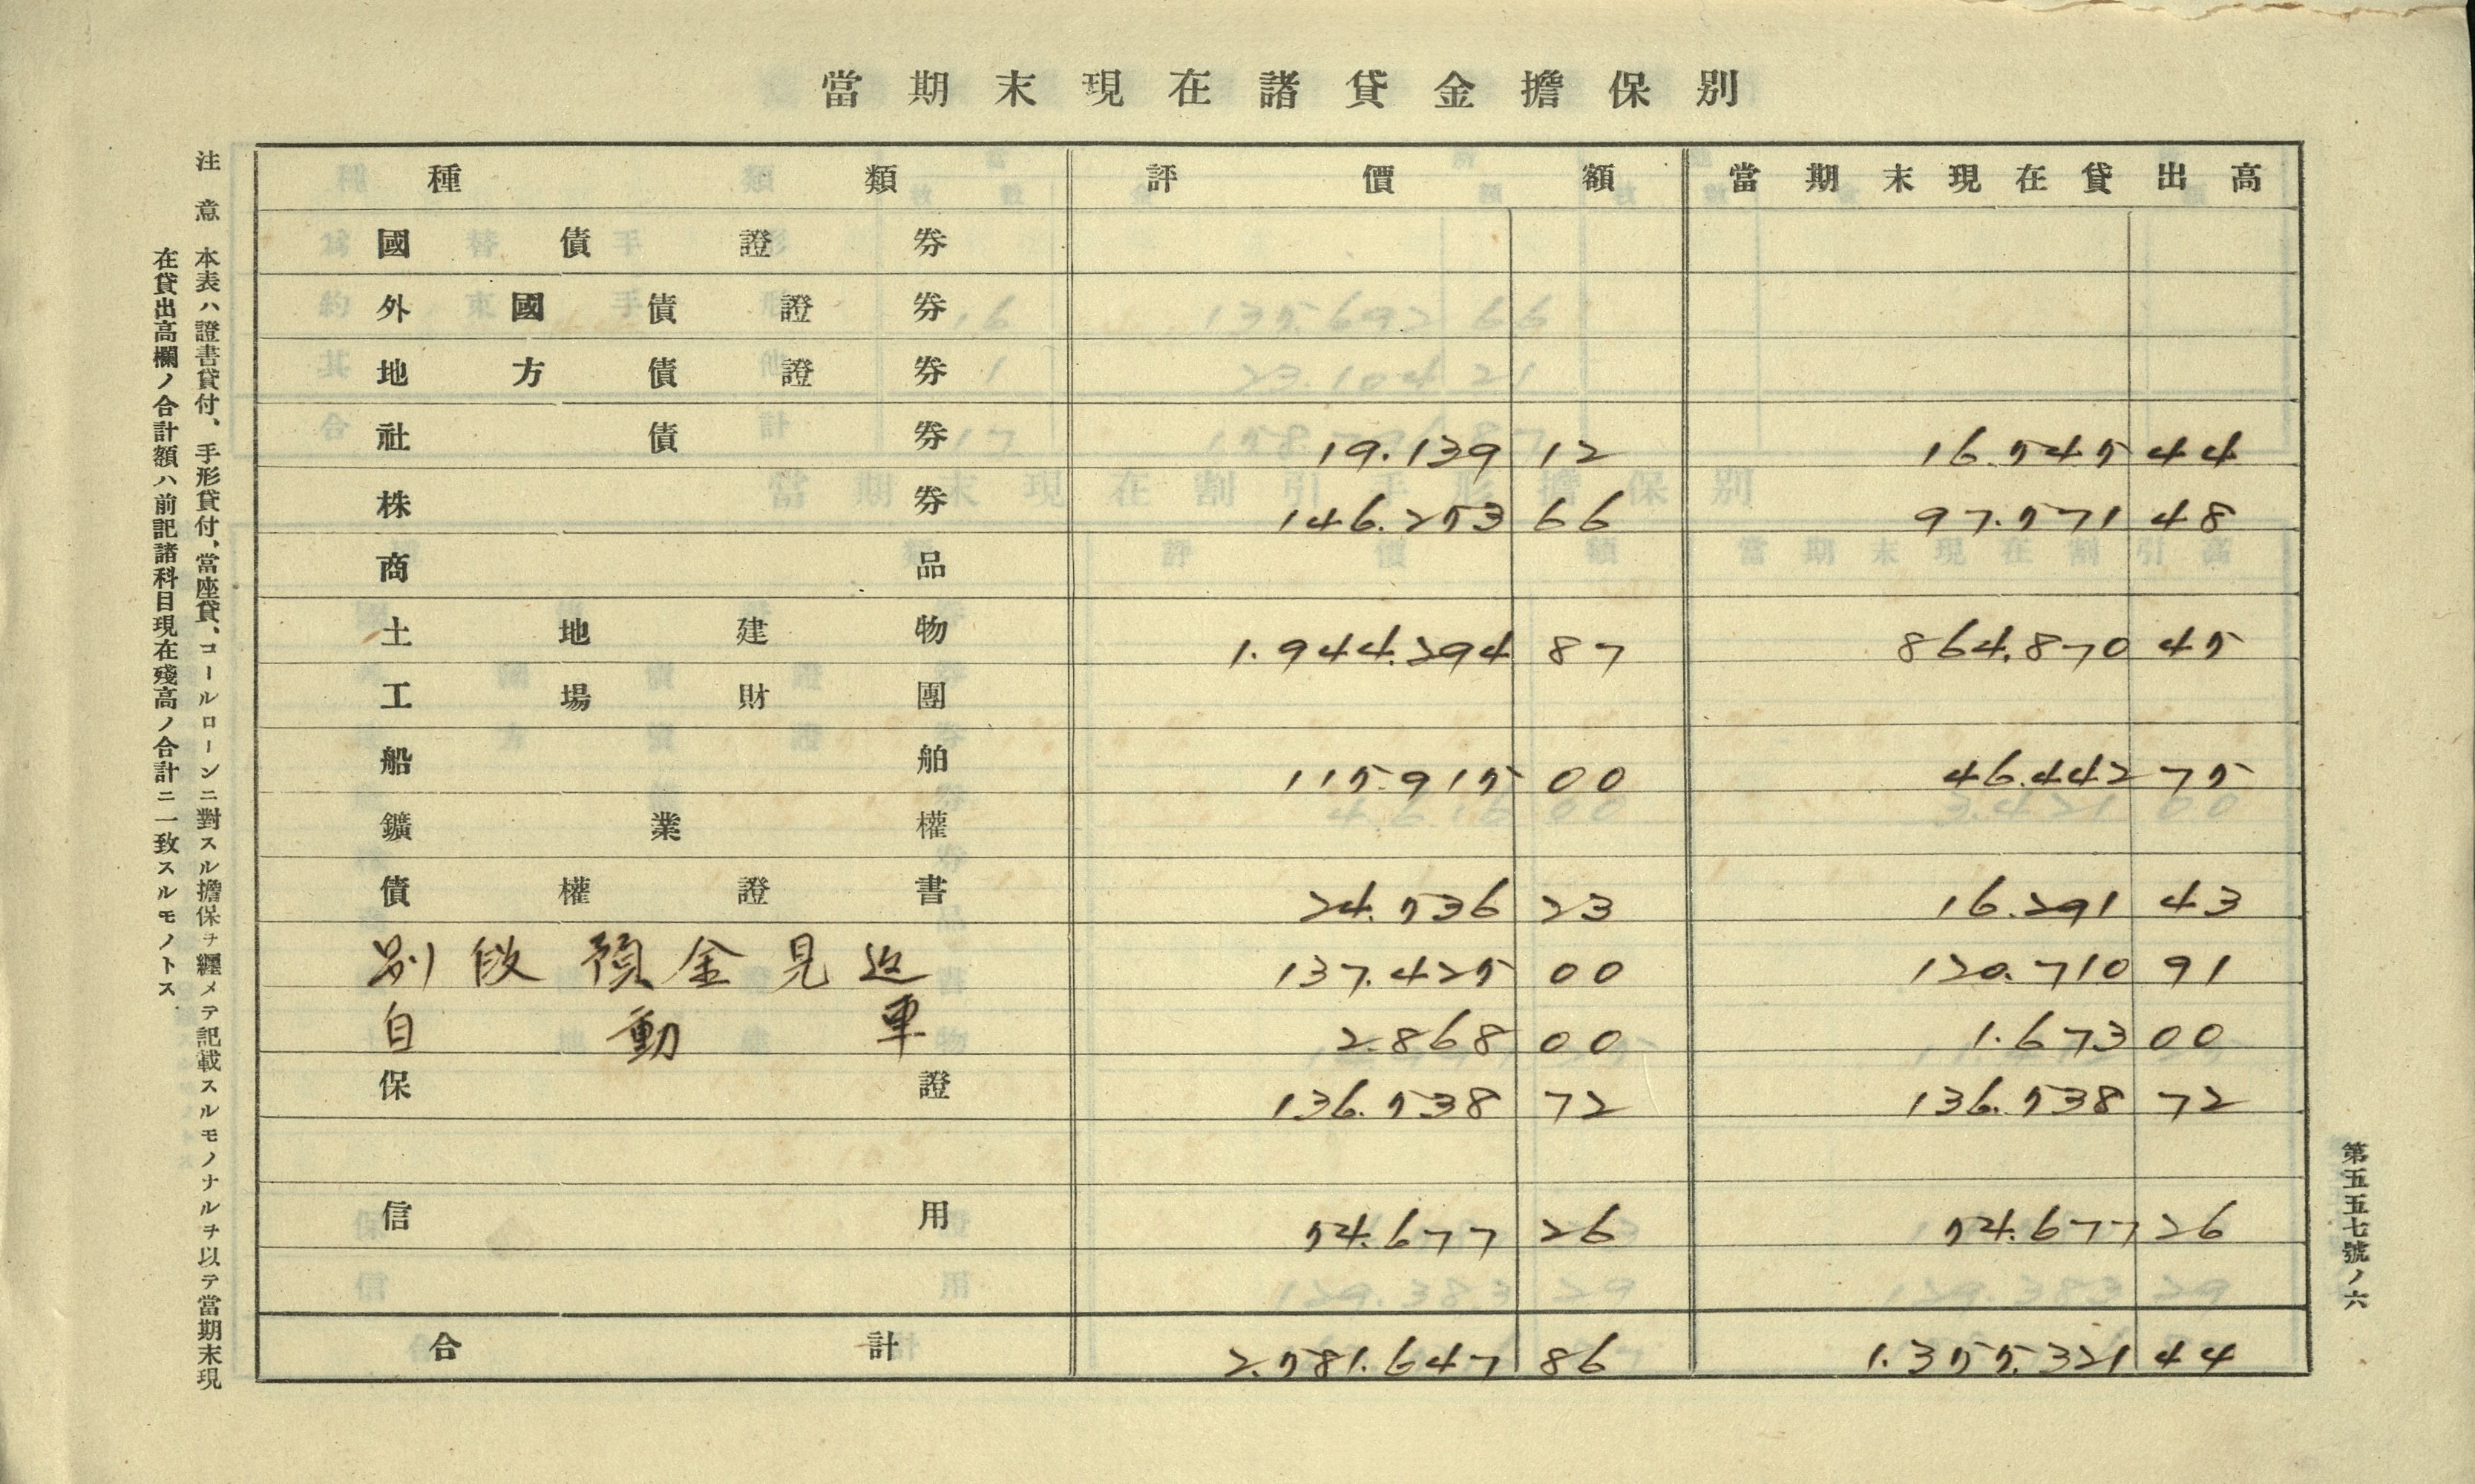 當期末現在諸貸金擔保別
種類 評價額 當期末現在貸出高
國債證券
外國債證券
地方債證券
社債券 19.139 12 16.545 44
株券 146.253 66 97.571 48
商品
土地建物 1.944.294 87 864.870 45
工場財團
船舶 115.915 00 46.442 75
鑛業權
債權證書 24.536 23 16.291 43
別段預金見返 137.425 00 120.710 91
自動車 2.868 00 1.673 00
保證 136.538 72 136.538 72
信用 54.677 26 54.677 26
合計 2.581.647 86 1.355.321 44
第五五七號ノ六
注意 本表ハ證書貸付、手形貸付、當座貸、コールローンニ對スル擔保ヲ纒メテ記載スルモノナルヲ以テ當期末現
在貸出高欄ノ合計額ハ前記諸科目現在殘高ノ合計ニ一致スルモノトス